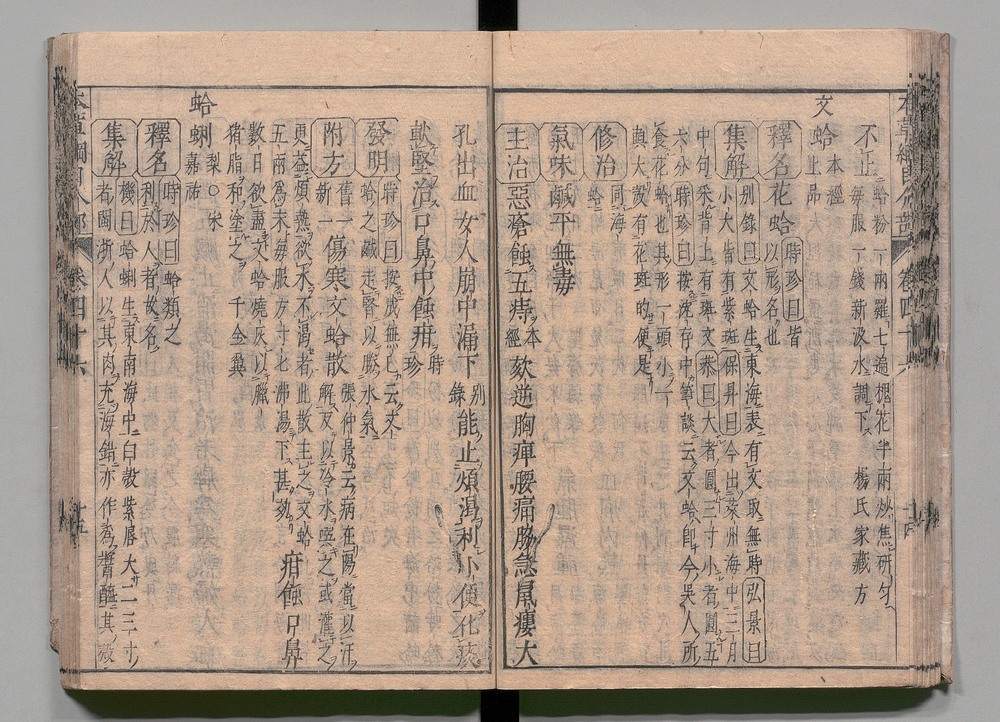 不止 蛤粉一兩羅七遍槐花半兩炒焦研勻
每服一錢新汲水調下 楊氏家藏方
文蛤 本經上品
釋名 花蛤 時珍曰皆以形名也
集解 別錄曰文蛤生東海表有文取無時 弘景曰
小大皆有紫斑 保昇曰今出萊州海中三月
中旬采背上有斑文 恭曰大者圓三寸小者圓五
六分 時珍曰按沈存中筆談云文蛤即今吳人所
食花蛤也其形一頭小一
頭大殼有花斑的便是
修治 同海蛤
氣味 鹹平無毒
主治 惡瘡蝕五痔 本經 欬逆胸痺腰痛脇急鼠瘻大
孔出血女人崩中漏下 別錄 能止煩渴利小便化痰
軟堅治口鼻中蝕疳 時珍
發明 時珍曰按成無己云文
蛤之鹹走腎以勝水氣
附方 舊一新一 傷寒文蛤散 張仲景云病在陽當以汗
解反以冷水噀之或灌之
更益煩熱欲水不渴者此散主之文蛤
五兩爲末每服方寸匕沸湯下甚効 疳蝕口鼻
數日欲盡文蛤燒灰以臘
猪脂和塗之 千金翼
蛤蜊 梨 宋嘉祐
釋名 時珍曰蛤類之
利於人者故名
集解 機曰蛤蜊生東南海中白殼紫唇大二三寸
者閩浙人以其肉充海錯亦作爲醬醯其殼
卷四十六
十五